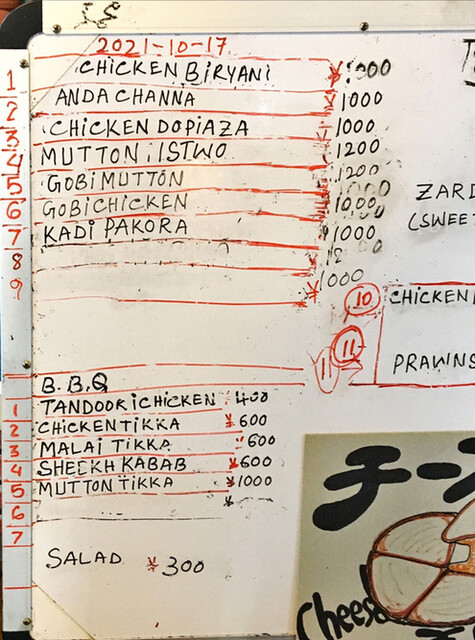 2021-10-17
1 CHICKEN BIRYANI
2 ANDA CHANNA ¥1000
3 CHICKEN DOPIAZA 1000
4 MUTTON ISTWO 1200
5 GOBI MUTTON 1200
6 GOBI CHICKEN 1000
7 KADI PAKORA 1000
8
9 ¥1000
ZARD
(SWEE
10 CHICKEN
11
11 PRAWNS
B.B.Q
1 TANDOORI CHICKEN 400
2 CHICKEN TIKKA ¥600
3 MALAI TIKKA 600
4 SHEEKH KABAB ¥600
5 MUTTON TIKKA ¥1000
6 ¥
7
SALAD ¥300
チー
Cheese